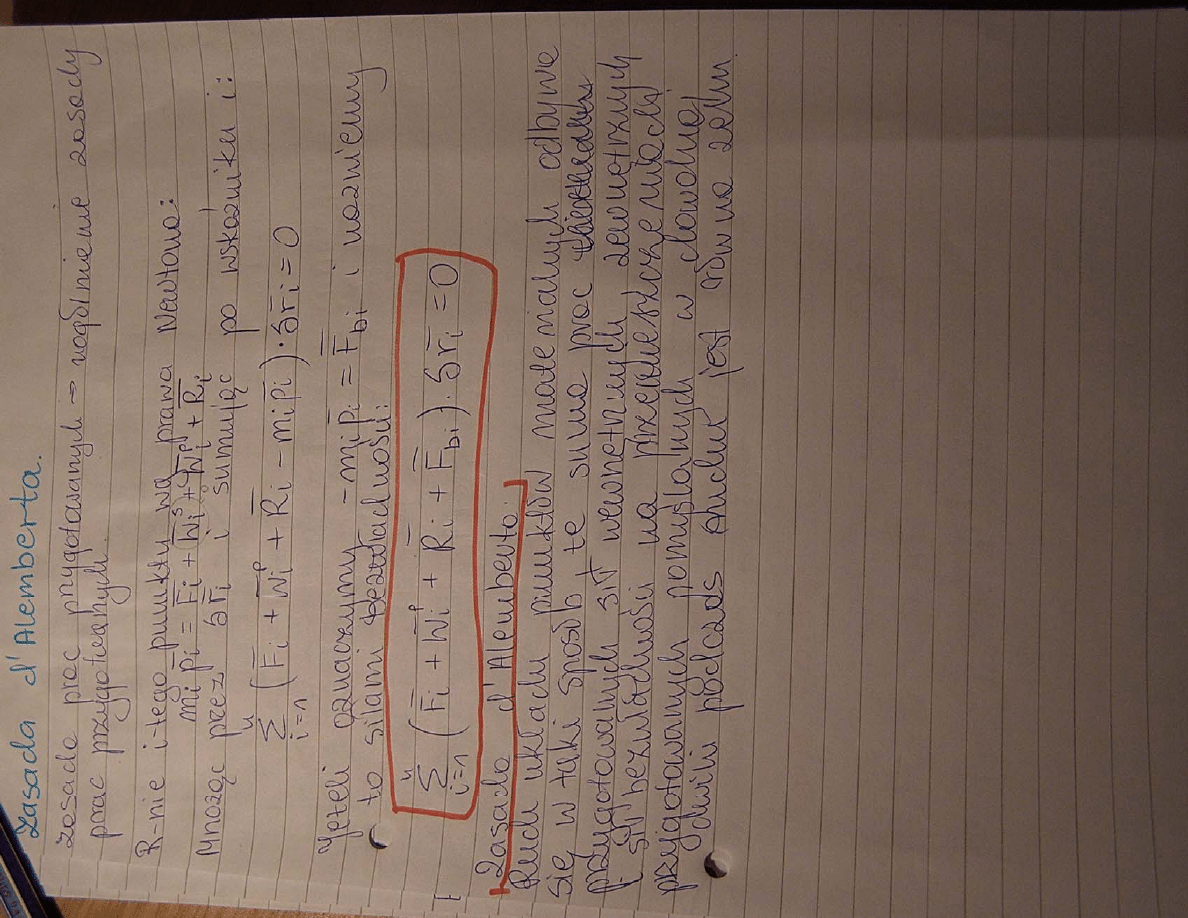 Zasada d'Alemberta.
zasada prac przygotowanych → uogólnienie zasady
prac przygotowanych.
R-nie i-tego punktu wg prawa Newtona:
m̄i p̄i = F̄i + W̄iˢ + W̄iᵖ + R̄i
Mnożąc przez δr̄i i sumując po wskaźniku i:
n∑i=1 (F̄i + W̄iᵖ + R̄i − mip̄i) · δr̄i = 0
Jeżeli oznaczymy −mip̄i = F̄bi i nazwiemy
to siłami bezwładności:
n∑i=1 (F̄i + W̄iᵖ + R̄i + F̄bi) · δr̄i = 0
Zasada d'Alemberta.
Ruch układu punktów materialnych odbywa
się w taki sposób że suma prac
przygotowanych sił wewnętrznych zewnętrznych
i sił bezwładności na przemieszczeniach
przygotowanych pomyślanych w dowolnej
chwili podczas ruchu jest równa zeru.